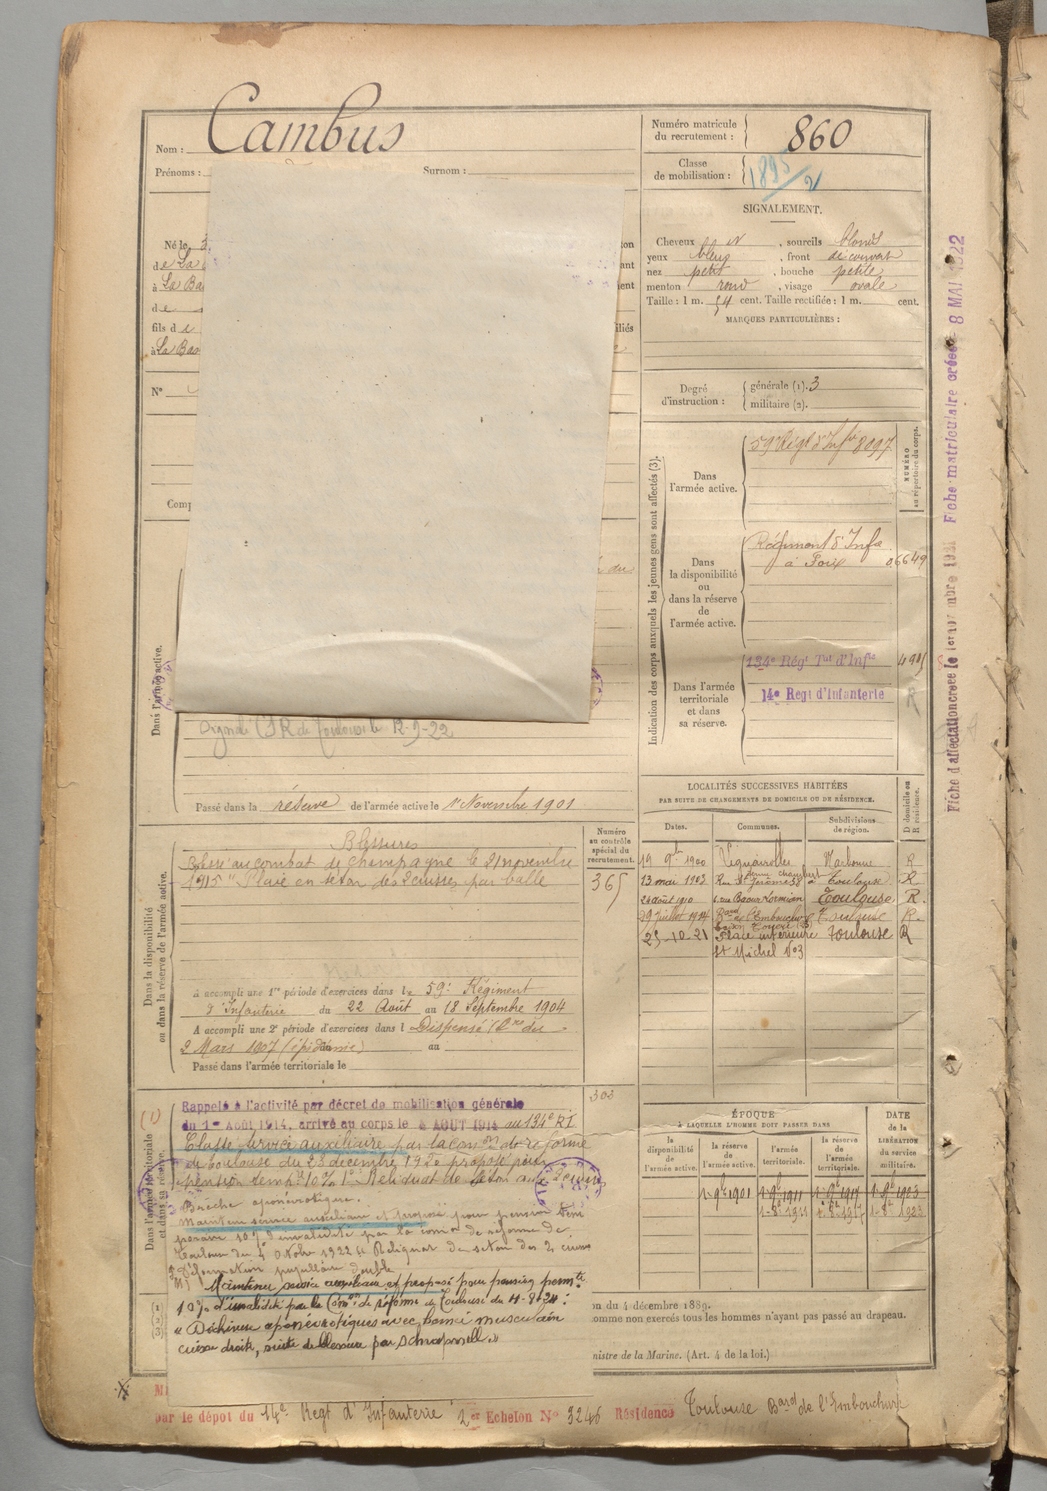 Nom : Cambus
Prénoms :
Surnom :
Numéro matricule du recrutement : 860
Classe de mobilisation : 1895/2
SIGNALEMENT.
Cheveux , sourcils blonds
yeux bleus , front découvert
nez petit , bouche petite
menton rond , visage ovale
Taille : 1 m. 54 cent. Taille rectifiée : 1 m. cent.
MARQUES PARTICULIÈRES :
Né le
de La
à La Ba
de
fils de
à La Bas
N°
Comp
Degré d'instruction : générale (1). 3
militaire (2).
Indication des corps auxquels les jeunes gens sont affectés (3).
NUMÉRO au répertoire du corps.
Dans l'armée active.
59e Régt d'Infie 8097
Dans la disponibilité ou dans la réserve de l'armée active.
Régiment d'Infie
à Foix 06649
Dans l'armée territoriale et dans sa réserve.
134e Régt Tal d'Infie
14e Régt d'Infanterie R
Dans l'armée active.
12-9-22
Passé dans la réserve de l'armée active le 1er Novembre 1901
LOCALITÉS SUCCESSIVES HABITÉES
PAR SUITE DE CHANGEMENTS DE DOMICILE OU DE RÉSIDENCE.
D domicile ou R résidence.
Dates. Communes. Subdivisions de région.
19 9bre 1900 Narbonne R
13 mai 1903 Rue St Jérôme Toulouse R
24 août 1910 Baour Lormian Toulouse R.
29 juillet 1914 Bard de l'Embouchure Toulouse R.
25-10-21 Place intérieure Toulouse R
St Michel No3
Numéro au contrôle spécial du recrutement.
365
Dans la disponibilité ou dans la réserve de l'armée active.
Blessures
Blessé au combat de Champagne le 2 novembre
1915 "Plaie en séton des 2 cuisses par balle
A accompli une 1re période d'exercices dans le 59e Régiment
d'Infanterie du 22 Août au 18 Septembre 1904
A accompli une 2e période d'exercices dans l Dispensé
2 Mars 1907 (épidémie) au
Passé dans l'armée territoriale le
Dans l'armée territoriale et dans sa réserve.
(1)
303
Rappelé à l'activité par décret de mobilisation générale
du 1er Août 1914, arrivé au corps le AOUT 1914 au 134e RI
Classé service auxiliaire par la Con de réforme
de Toulouse du 23 décembre 1920 proposé pour
pension temp. 10% 1° Reliquat de séton aux 2 cuisses
Brèche aponévrotique.
Maintenu service auxiliaire et proposé pour pension tem
poraire 10% d'invalidité par la comon de réforme de
Toulouse du 4 Octobre 1922 "Reliquat de séton des 2 cuisses
Maintenu service auxiliaire et proposé pour pension permte
10% d'invalidité par la Comon de réforme de Toulouse du 4-8-24 :
"Déchirure aponévrotiques avec hernie musculaire
cuisse droite, suite de blessure par schrapnell."
ÉPOQUE
À LAQUELLE L'HOMME DOIT PASSER DANS
DATE de la LIBÉRATION du service militaire.
la disponibilité de l'armée active.
la réserve de l'armée active.
l'armée territoriale.
la réserve de l'armée territoriale.
1-9bre 1901 1-9bre 1911 1-9bre 1917 1-9bre 1923
on du 4 décembre 1889.
omme non exercés tous les hommes n'ayant pas passé au drapeau.
nistre de la Marine. (Art. 4 de la loi.)
par le dépot du 14e Regt d'Infanterie 2er Echelon No 3246 Résidence Toulouse Bard de l'Embouchure
Fiche d'affectation créée le Fiche matriculaire créée 8 MAI 1922